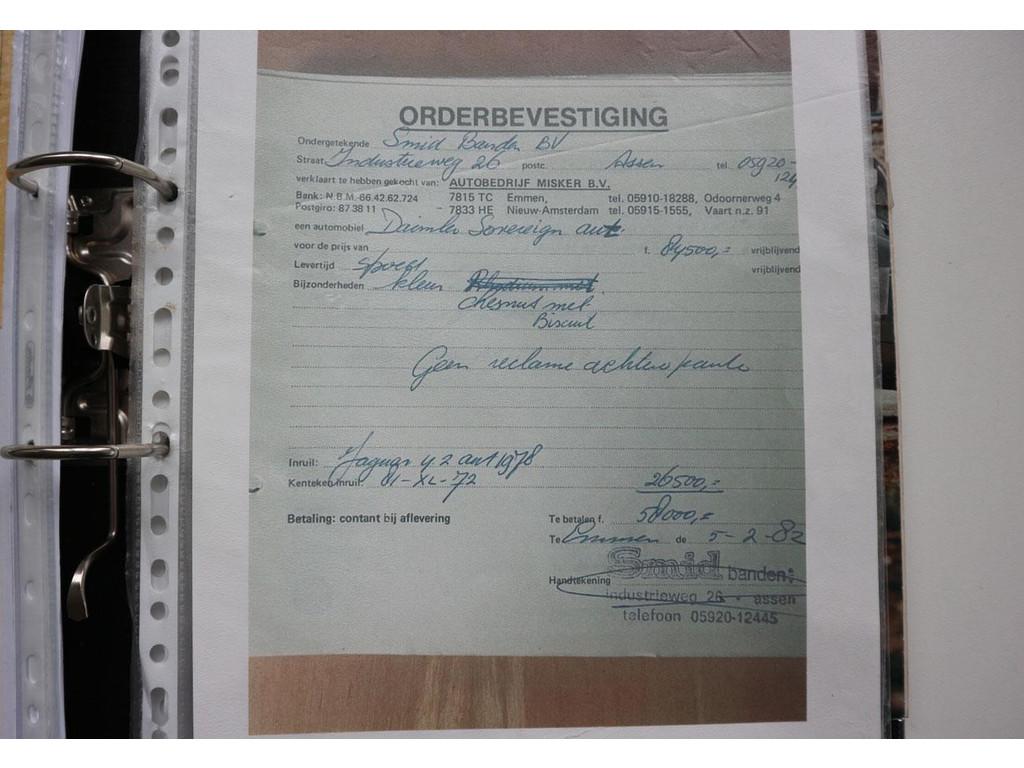 ORDERBEVESTIGING
Ondergetekende Smid Banden BV
Straat Industrieweg 26 postc. Assen tel. 05920-
124
verklaart te hebben gekocht van: AUTOBEDRIJF MISKER B.V.
Bank: N.B.M. 66.42.62.724 7815 TC Emmen, tel. 05910-18288, Odoornerweg 4
Postgiro: 87 38 11 - 7833 HE Nieuw-Amsterdam tel. 05915-1555, Vaart n.z. 91
een automobiel Daimler Sovereign aut
voor de prijs van f. 84500,= vrijblijvend
Levertijd spoed vrijblijvend
Bijzonderheden kleur
chesnut met
Biscuit
Geen reclame achter
Inruil: Jaguar 4 2 aut 1978
Kenteken inruil: 01-XL-72 26500,=
Betaling: contant bij aflevering Te betalen f. 58000,=
Te Emmen de 5-2-82
Handtekening Smid banden
industrieweg 26 - assen
telefoon 05920-12445